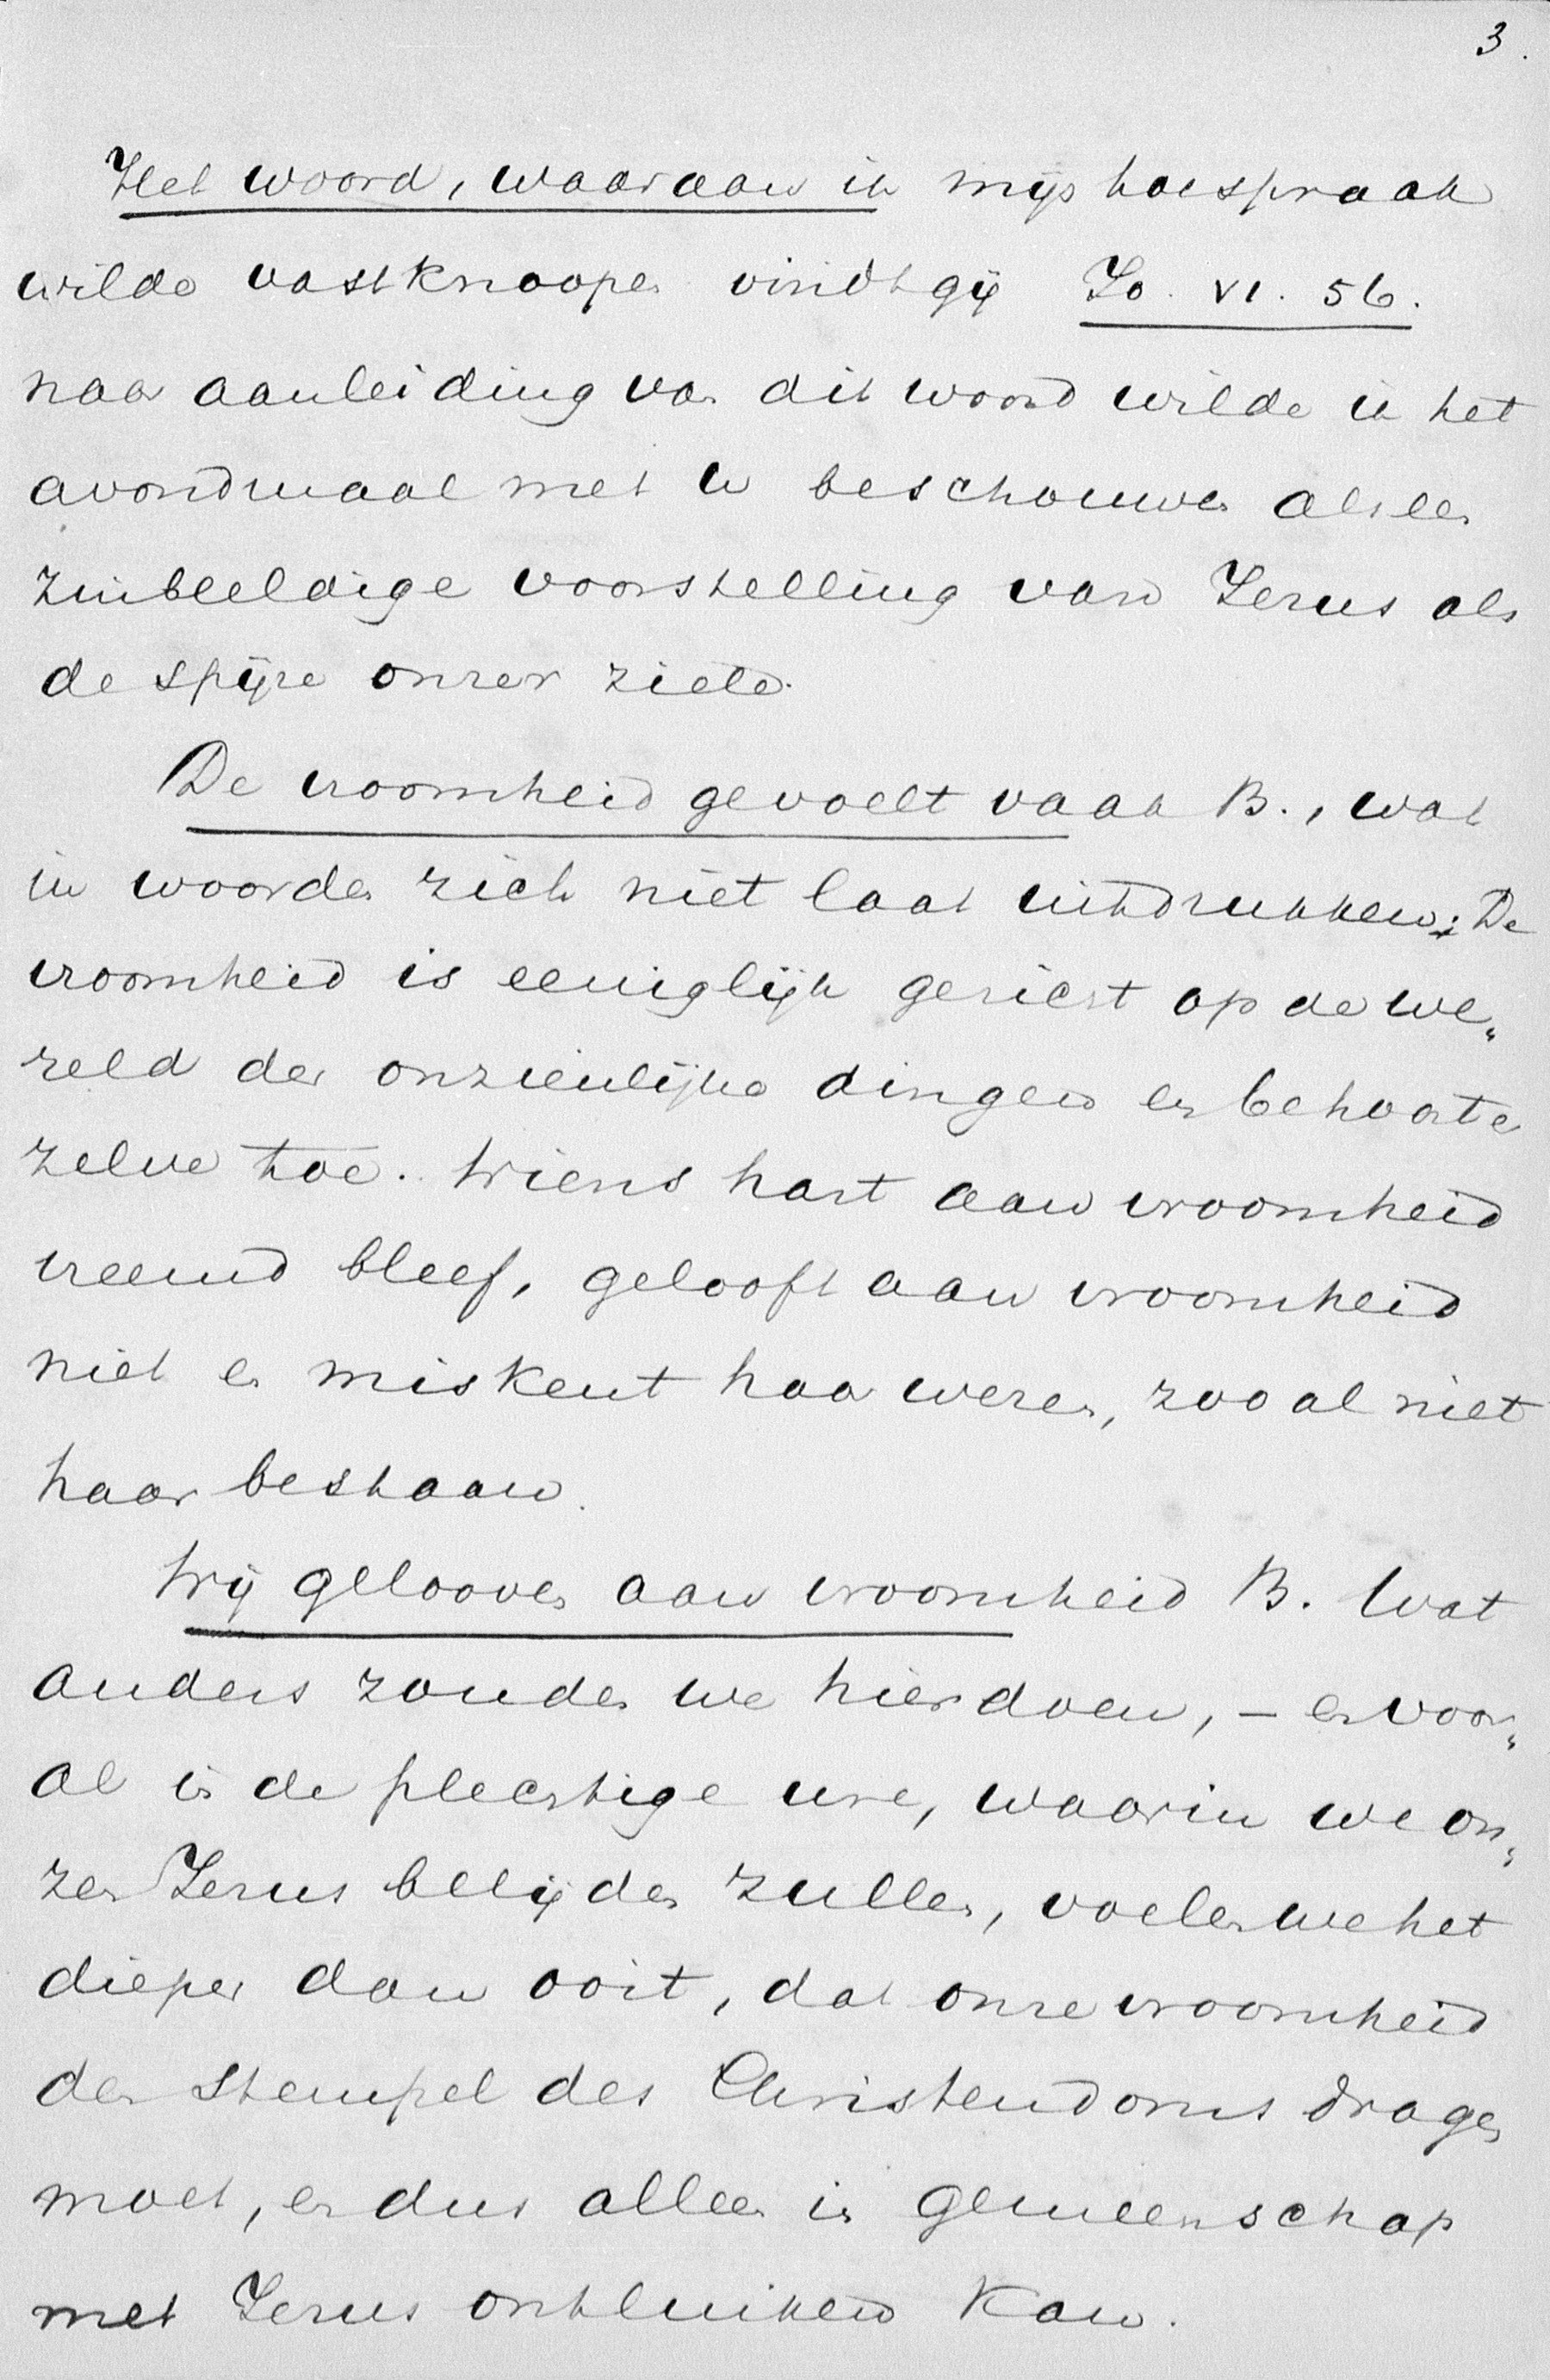 3.
Het woord, waaraan ik mijn toespraak
wilde vastknoopen vindt gij Jo. VI. 56.
naar aanleiding van dit woord wilde ik het
avondmaal met U beschouwen als een
zinbeeldige voorstelling van Jezus als
de spijze onzer ziele.
De vroomheid gevoelt vaak B., wat
in woorden zich niet laat uitdrukken; De
vroomheid is eeniglijk gericht op de we„
reld der onzienlijke dingen en behoorte
zelve toe. Wiens hart aan vroomheid
vreemd bleef, gelooft aan vroomheid
niet en miskent haar wezen, zoo al niet
haar bestaan.
Wij gelooven aan vroomheid B. Wat
anders zouden we hier doen, – en voor„
al in de plechtige ure, waarin we on„
zen Jezus belijden zullen, voelen we het
dieper dan ooit, dat onze vroomheid
den stempel des Christendoms dragen
moet, en dus alleen in gemeenschap
met Jezus ontluiken kan.